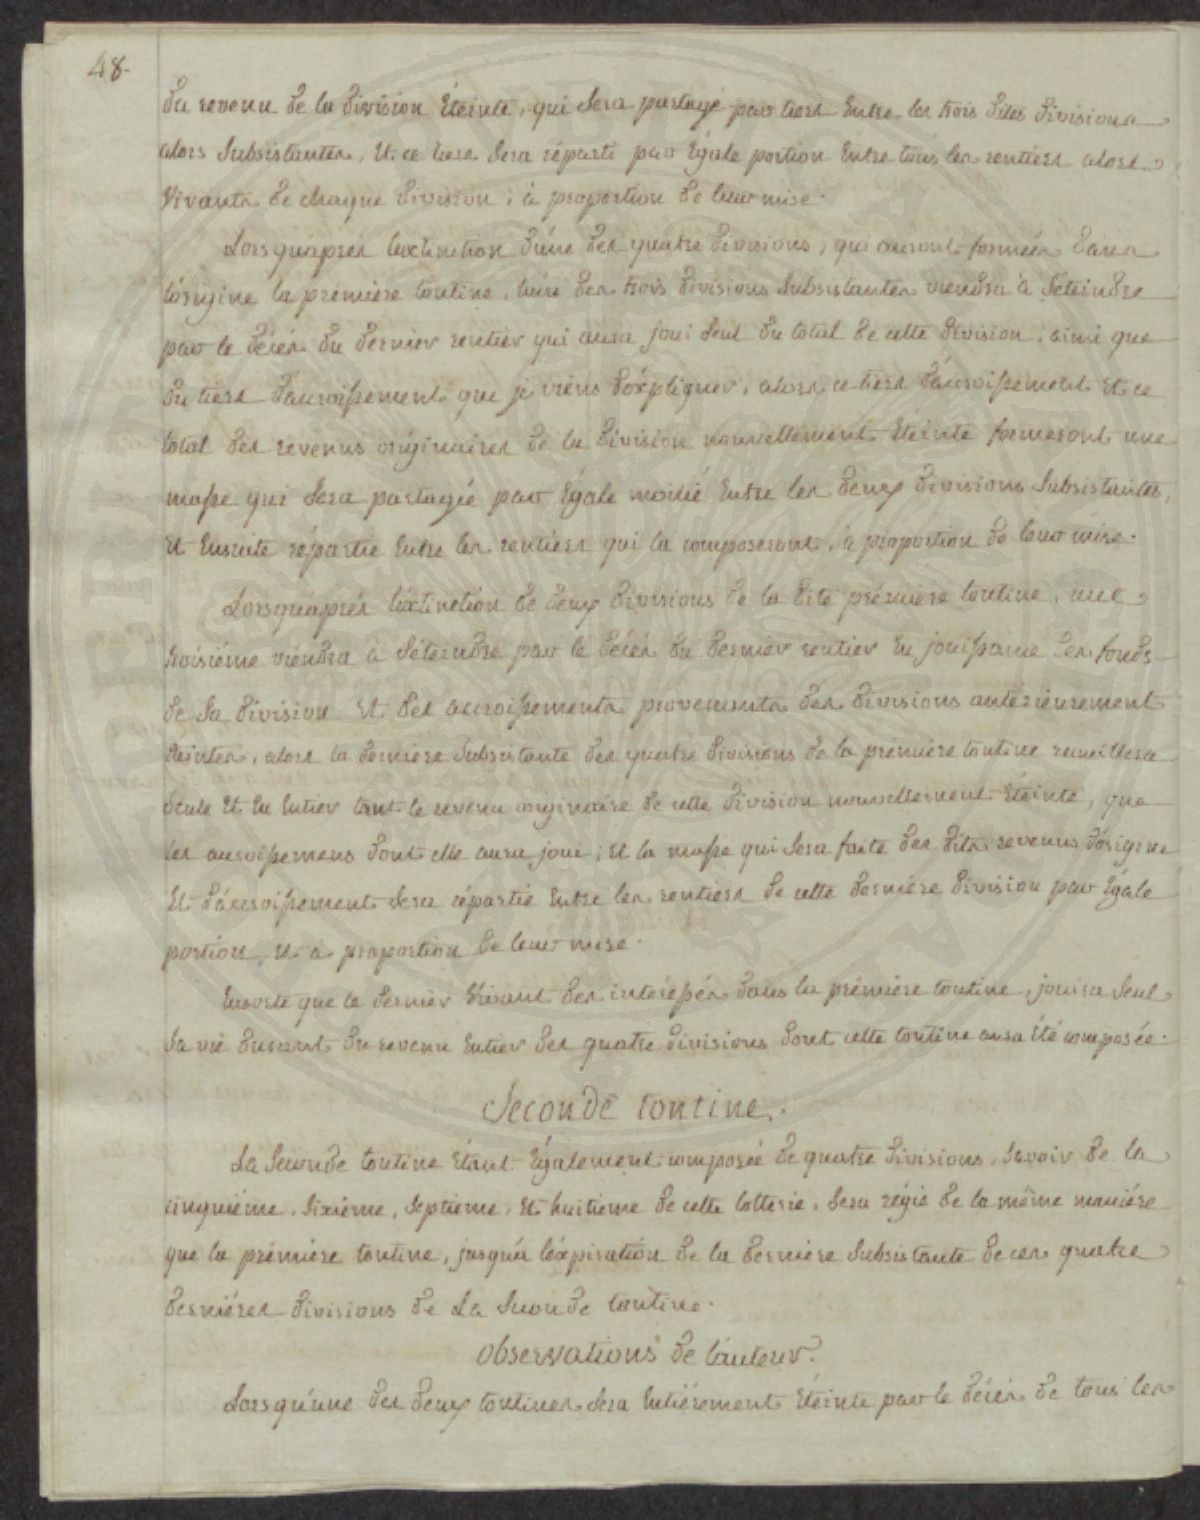 48.
du revenu de la division Éteinte, qui Sera partagé par tiers Entre les trois dites divisions
alors Subsistantes, Et ce tiers Sera réparti par Égale portion Entre tous les rentiers alors
Vivants de chaque division, à proportion de leur mise.
Lors qu'aprés l'extinction d'une des quatre divisions, qui auront formées dans
l'origine la prémiere tontine, l'une des trois divisions Subsistantes viendra à S'éteindre
par le décés du dernier rentier qui aura joui Seul du total de cette division, ainsi que
du tiers d'accroissement que je viens d'expliquer, alors ce tiers d'accroissement Et ce
total des revenus originaires de la division nouvellement Éteinte formeront une
masse qui Sera partagée par Égale moitié Entre les deux divisions Subsistantes,
Et Ensuite répartie Entre les rentiers qui la composeront, à proportion de leur mise.
Lorsqu'aprés l'extinction de deux divisions de la dite prémiere tontine, une
troisiéme viendra à S'éteindre par le décés du dernier rentier En jouissance des fonds
de Sa division Et des accroissements provenants des divisions antérieurement
éteintes, alors la derniere Subsistante des quatre divisions de la premiere tontine recueillera
Seule Et En Entier tant le revenu originaire de cette division nouvellement Éteinte, que
les accroissemens dont elle aura joui; Et la masse qui Sera faite des dits revenus d'origine
Et d'accroissement Sera répartie Entre les rentiers de cette derniére division par Égale
portion, Et à proportion de leur mise.
Ensorte que le dernier Vivant des intéréssés dans la prémiere tontine, jouira Seul
Sa vie durant du revenu Entier des quatre divisions dont cette tontine aura Été composée.
Seconde tontine.
La Seconde tontine Étant Également composée de quatre divisions, Savoir de la
cinquiéme, Sixiéme, Septieme, Et huitieme de cette lotterie, Sera régie de la même maniére
que la prémiere tontine, jusqu'à l'éxpiration de la derniere Subsistante de ces quatre
derniéres divisions de La Seconde tontine.
Observations de l'auteur.
Lorsqu'une des deux tontines Sera Entiérement Éteinte par le décés de tous les